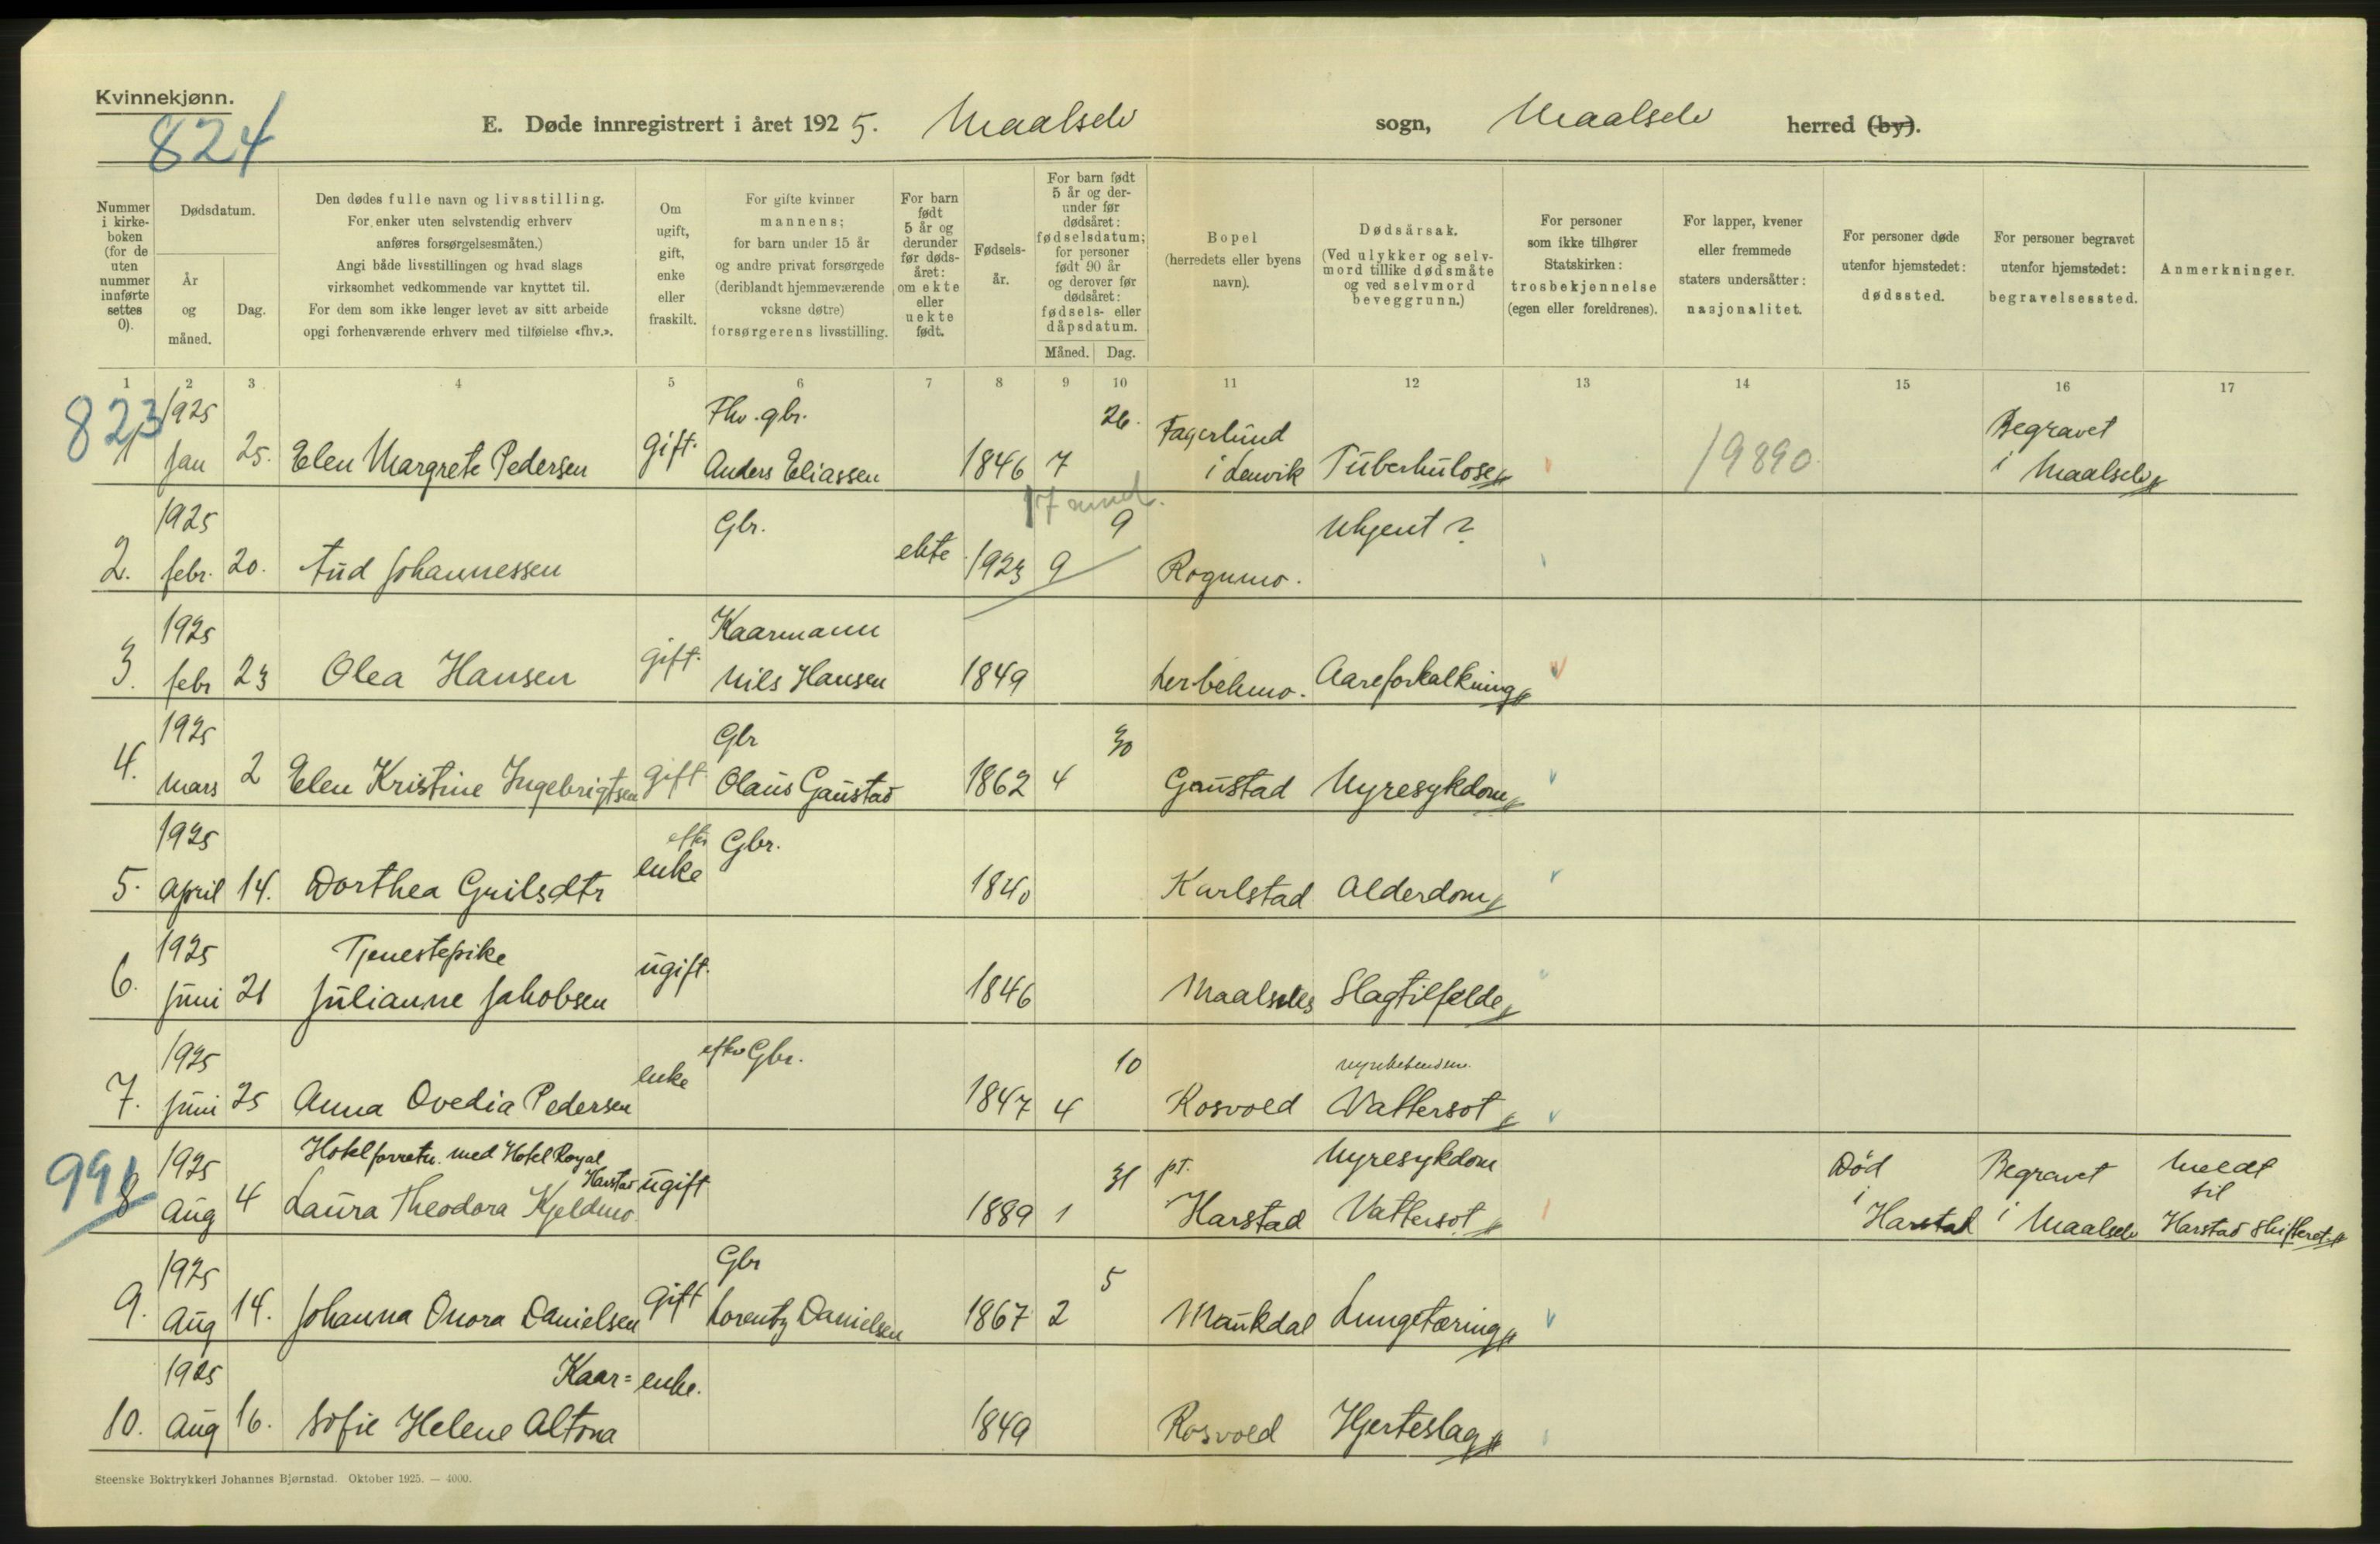 Kvinnekjønn.
824
E. Døde innregistrert i året 1925. Maalselv sogn, Maalselv herred (by).
Nummer i kirke-boken (for de uten nummer innførte settes 0).
Dødsdatum.
År og måned.
Dag.
Den dødes fulle navn og livsstilling.
For enker uten selvstendig erhverv
anføres forsørgelsesmåten.)
Angi både livsstillingen og hvad slags
virksomhet vedkommende var knyttet til.
For dem som ikke lenger levet av sitt arbeide
opgi forhenværende erhverv med tilføielse «fhv.».
Om ugift, gift, enke eller fraskilt.
For gifte kvinner
mannens;
for barn under 15 år
og andre privat forsørgede
(deriblandt hjemmeværende
voksne døtre)
forsørgerens livsstilling.
For barn født 5 år og derunder før døds-året: om ekte eller uekte født.
Fødsels-år.
For barn født 5 år og der-under før dødsåret: fødselsdatum; for personer født 90 år og derover før dødsåret: fødsels- eller dåpsdatum.
Måned. Dag.
Bopel
(herredets eller byens
navn).
Dødsårsak.
(Ved ulykker og selv-
mord tillike dødsmåte
og ved selvmord
beveggrunn.)
For personer
som ikke tilhører
Statskirken:
trosbekjennelse
(egen eller foreldrenes).
For lapper, kvener
eller fremmede
staters undersåtter:
nasjonalitet.
For personer døde
utenfor hjemstedet:
dødssted.
For personer begravet
utenfor hjemstedet:
begravelsessted.
Anmerkninger.
1 2 3 4 5 6 7 8 9 10 11 12 13 14 15 16 17
823
1925 Fhv. gbr. 26. Fagerlund Begravet
1 Jan 25. Elen Margrete Pedersen gift. Anders Eliassen 1846 7 i Lenvik Tuberkulose 19890 i Maalselv
17 mnd.
1925 Gbr. 9 Ukjent?
2. febr. 20. Aud Johannessen ekte 1923 9 Rognmo.
1925 Kaarmann
3. febr 23 Olea Hansen gift. Nils Hansen 1849 Aareforkalkning
1925 Gbr 30
4. Mars 2 Elen Kristine Ingebrigtsen gift Olaus Gaustad 1862 4 Gaustad Nyresykdom
1925 efter Gbr.
5. April 14. Dorthea Grilsdtr enke 1840 Karlstad Alderdom
1925 Tjenestepike
6. Juni 21 Julianne Jakobsen ugift. 1846 Slagtilfelde
1925 efter Gbr. 10
7. Juni 25 Anna Ovedia Pedersen enke 1847 4 Rosvold Vattersot
991
1925 Hotelforretn. med Hotel Royal 31 pt. Nyresykdom Død Begravet Meldt
Harstad til
8 Aug 4 Laura Theodora Kjeldmo ugift 1889 1 Harstad Vattersot i Harstad i Maalselv Harstad Skifteret.
1925 Gbr 5
9. Aug 14. Johanna Onora Danielsen gift Lorentz Danielsen 1867 2 Maukdal Lungetæring
1925 Kaar=enke.
10. Aug 16. Sofie Helene Altona 1849 Rosvold Hjerteslag
Steenske Boktrykkeri Johannes Bjørnstad. Oktober 1925. — 4000.